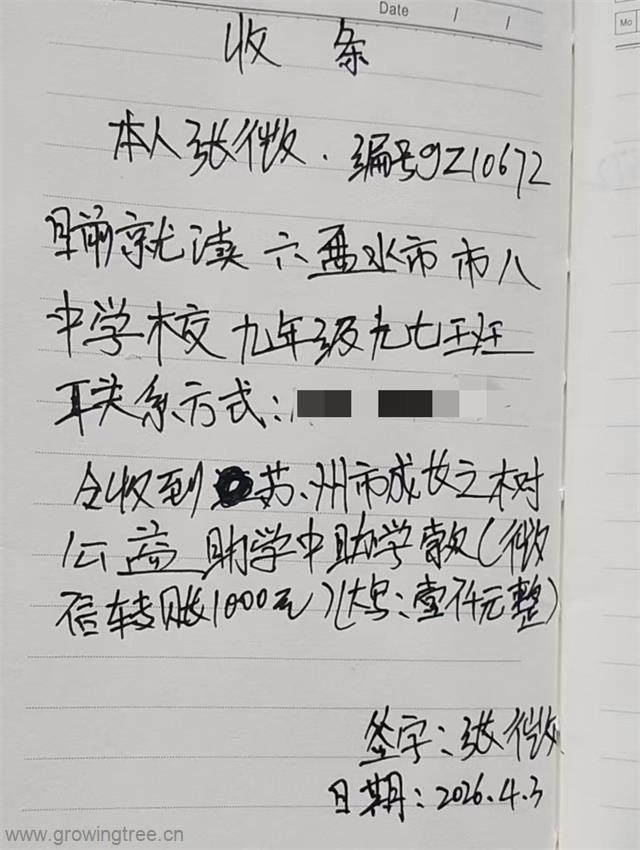 Date / /
Mo
收 条
本人张微. 编号GZ10672
目前就读六盘水市市八
中学校九年级九七班
联关系方式:
今收到苏州市成长之树
公益助学中助学款(微
信转账1000元)(大写:壹仟元整)
签字:张微
日期:2026.4.3
www.growingtree.cn